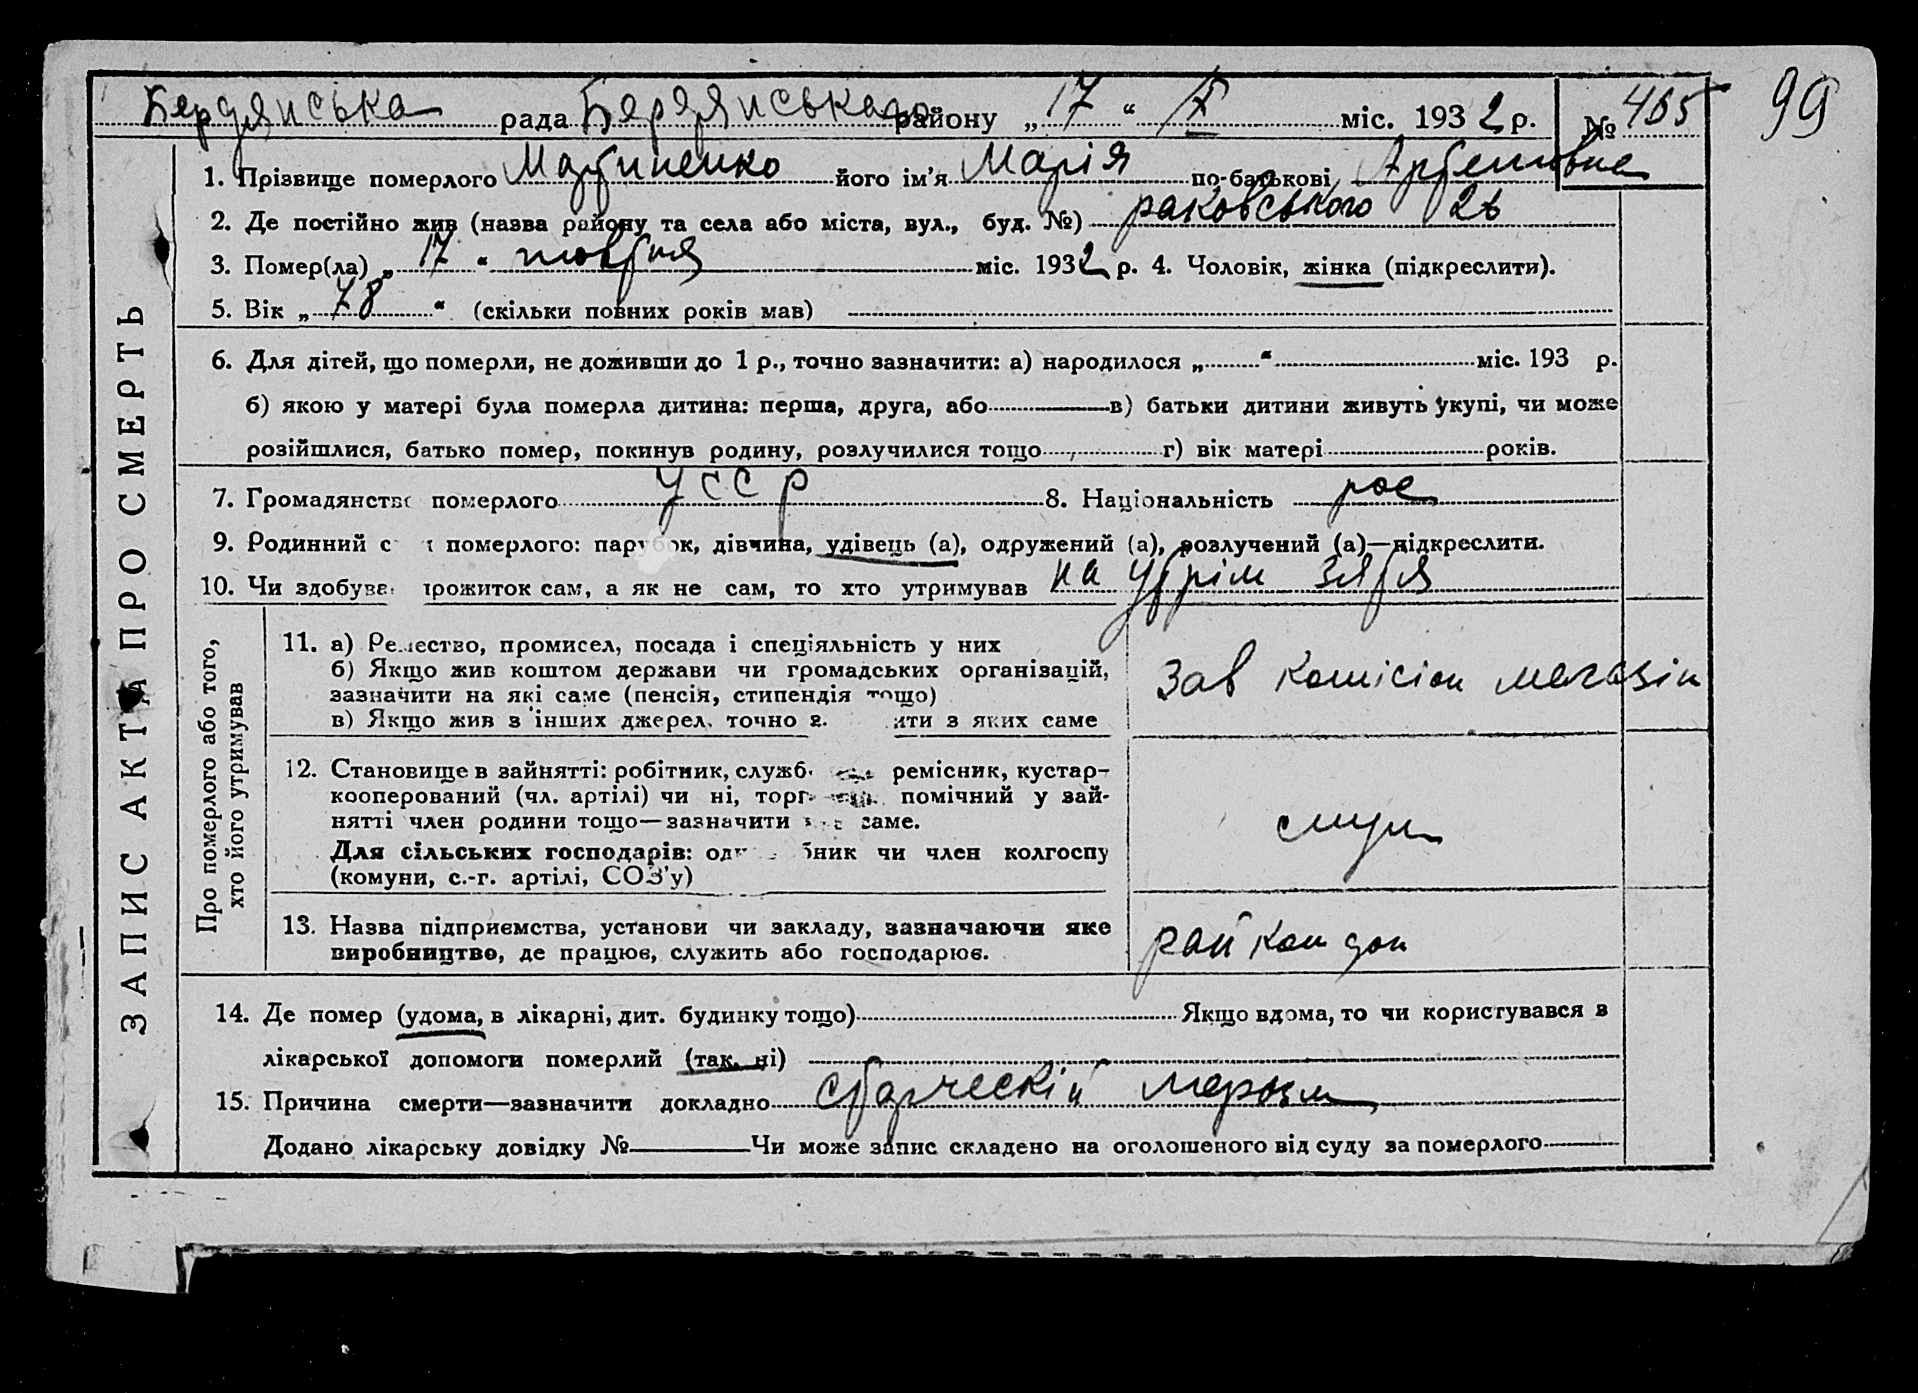 99
Бердянська рада Бердянського району „ 17 “ X міс. 1932 р. № 465
1. Прізвище померлого Мартиненко його ім’я Марія по-батькові Артемівна
2. Де постійно жив (назва району та села або міста, вул., буд. №) раковського 26
3. Помер(ла) „ 17 “ жовтня міс. 1932 р. 4. Чоловік, жінка (підкреслити).
5. Вік „ 78 “ (скільки повних років мав)
6. Для дітей, що померли, не доживши до 1 р., точно зазначити: а) народилося „ “ міс. 193 р.
б) якою у матері була померла дитина: перша, друга, або в) батьки дитини живуть укупі, чи може
розійшлися, батько помер, покинув родину, розлучилися тощо г) вік матері років.
7. Громадянство померлого УССР 8. Національність рос
9. Родинний с н померлого: парубок, дівчина, удівець (а), одружений (а), розлучений (а)—підкреслити.
10. Чи здобува прожиток сам, а як не сам, то хто утримував на утрім зятя
ЗАПИС АКТА ПРО СМЕРТЬ
Про померлого або того,
хто його утримував
11. а) Ремество, промисел, посада і спеціяльність у них
б) Якщо жив коштом держави чи громадських організацій,
зазначити на які саме (пенсія, стипендія тощо)
в) Якщо жив з інших джерел, точно з ити з яких саме
Зав комісіон магазін
12. Становище в зайнятті: робітник, служб ремісник, кустар-
кооперований (чл. артілі) чи ні, торг помічний у зай-
нятті член родини тощо—зазначити саме.
Для сільських господарів: од бник чи член колгоспу
(комуни, с.-г. артілі, СОЗ’у)
служ
13. Назва підприємства, установи чи закладу, зазначаючи яке
виробництво, де працює, служить або господарює.
рай
14. Де помер (удома, в лікарні, дит. будинку тощо) Якщо вдома, то чи користувався в
лікарської допомоги померлий (так, ні)
15. Причина смерти—зазначити докладно старческій маразм
Додано лікарську довідку № Чи може запис складено на оголошеного від суду за померлого